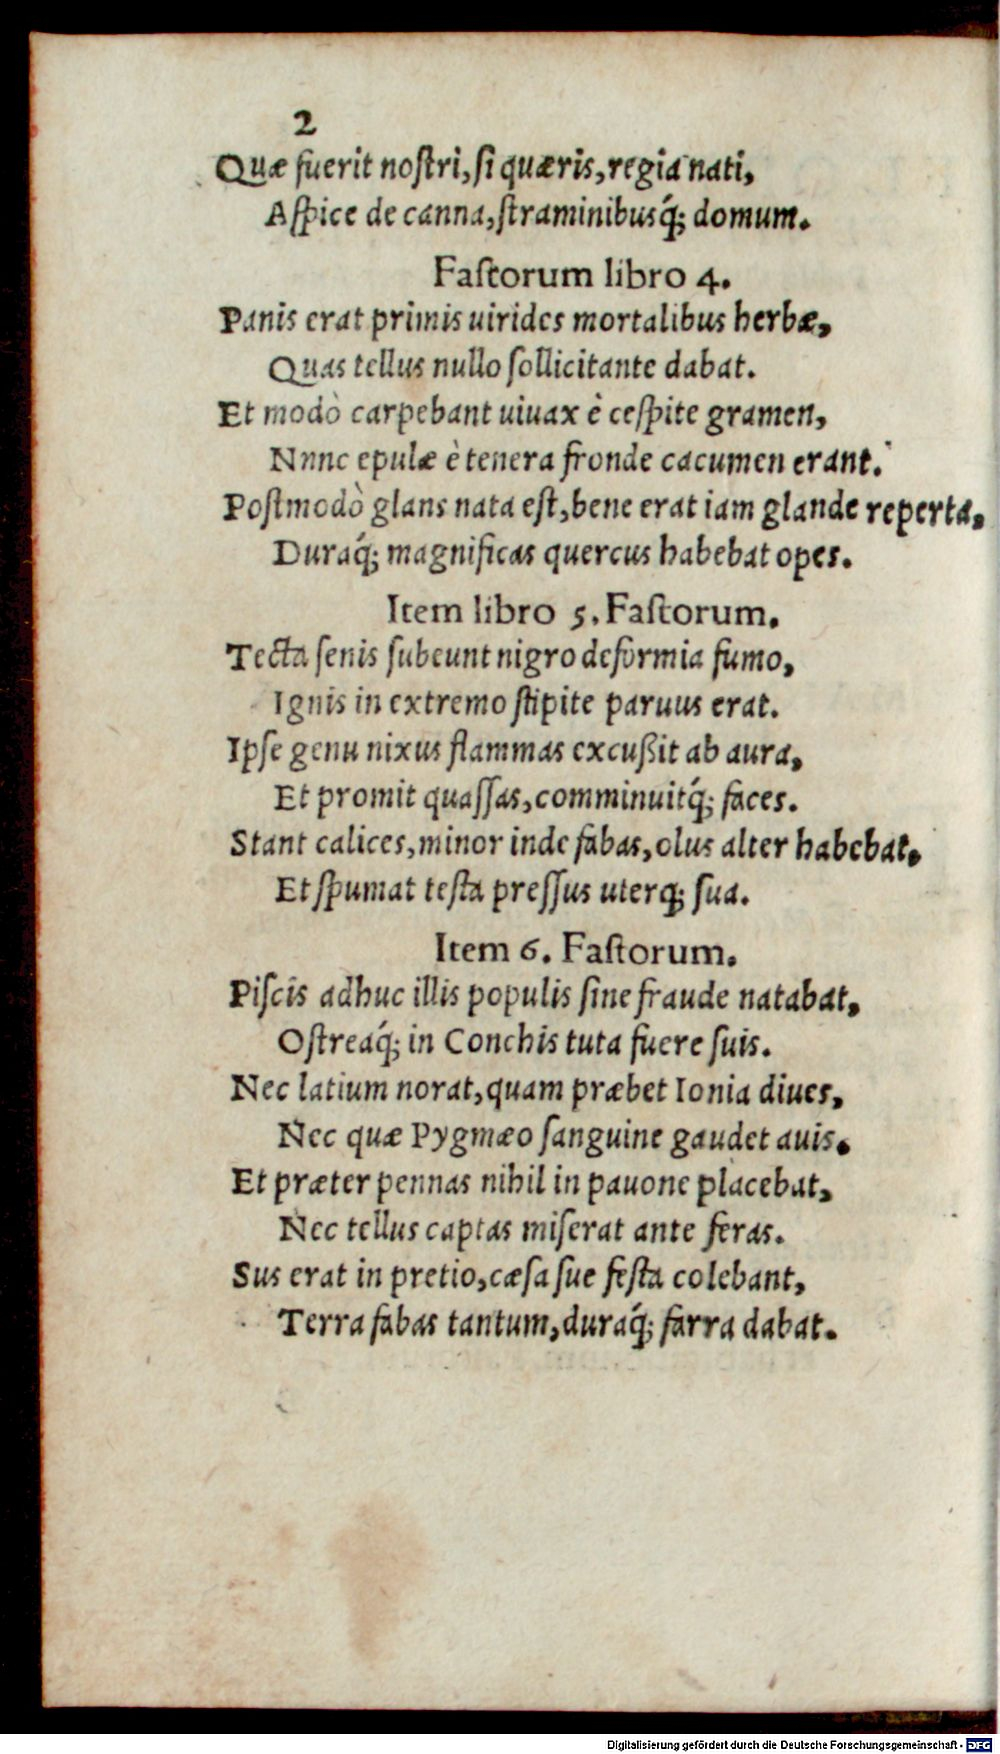 2
Quæ fuerit nostri, si quæris, regia nati,
Aspice de canna, straminibusq́; domum.
Fastorum libro 4.
Panis erat primis uirides mortalibus herbæ,
Quas tellus nullo sollicitante dabat.
Et modò carpebant uiuax è cespite gramen,
Nnnc epulæ è tenera fronde cacumen erant.
Postmodò glans nata est, bene erat iam glande reperta,
Duraq́; magnificas quercus habebat opes.
Item libro 5. Fastorum.
Tecta senis subeunt nigro deformia fumo,
Ignis in extremo stipite paruus erat.
Ipse genu nixus flammas excußit ab aura,
Et promit quassas, comminuitq́; faces.
Stant calices, minor inde fabas, olus alter habebat,
Et spumat testa pressus uterq; sua.
Item 6. Fastorum.
Piscis adhuc illis populis sine fraude natabat,
Ostreaq́; in Conchis tuta fuere suis.
Nec latium norat, quam præbet Ionia diues,
Nec quæ Pygmæo sanguine gaudet auis.
Et præter pennas nihil in pauone placebat,
Nec tellus captas miserat ante feras.
Sus erat in pretio, cæsa sue festa colebant,
Terra fabas tantum, duraq́; farra dabat.
Digitalisierung gefördert durch die Deutsche Forschungsgemeinschaft - DFG